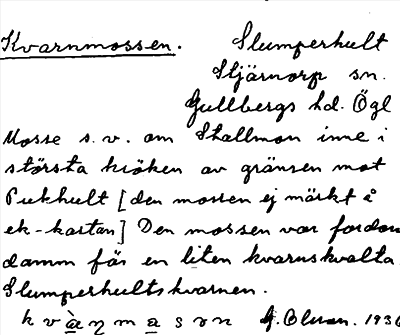 Kvarnmossen. Slumperhult
Stjärnorp sn.
Gullbergs hd. Ögl
Mosse s.v. om Stallmon inne i
största kröken av gränsen mot
Pukhult [den mossen ej märkt å
ek-kartan] Den mossen var fordom
damm för en liten kvarnskvalta
Slumperhultskvarnen.
kvà̱ŋma̱sɔn G. Olson. 1936